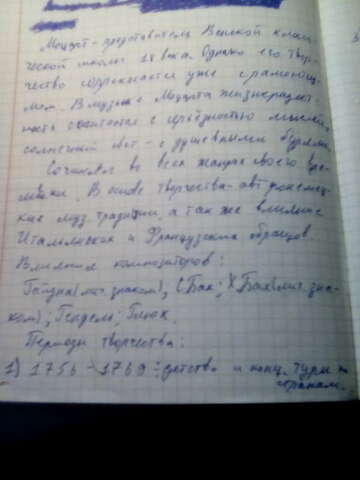 Моцарт - представитель Венской класси-
ческой школы 18 века. Однако его твор-
чество сопрягается уже с романтиз-
мом. В музыке Моцарта жизнерадост-
ность сочетается с серьёзностью мыслей,
солнечный свет - с душевными бурями.
Сочинял во всех жанрах своего вре-
мени. В основе творчества - австро-немец-
кие муз. традиции, а так же влияние
Итальянских и Французских образцов.
Влияния композиторов:
Гайдна (лич. знаком), С. Бах; Х. Бах (лич. зна-
ком); Гендель; Глюк.
Периоды творчества:
1) 1756 - 1769 - детство и конц. туры по
странам.